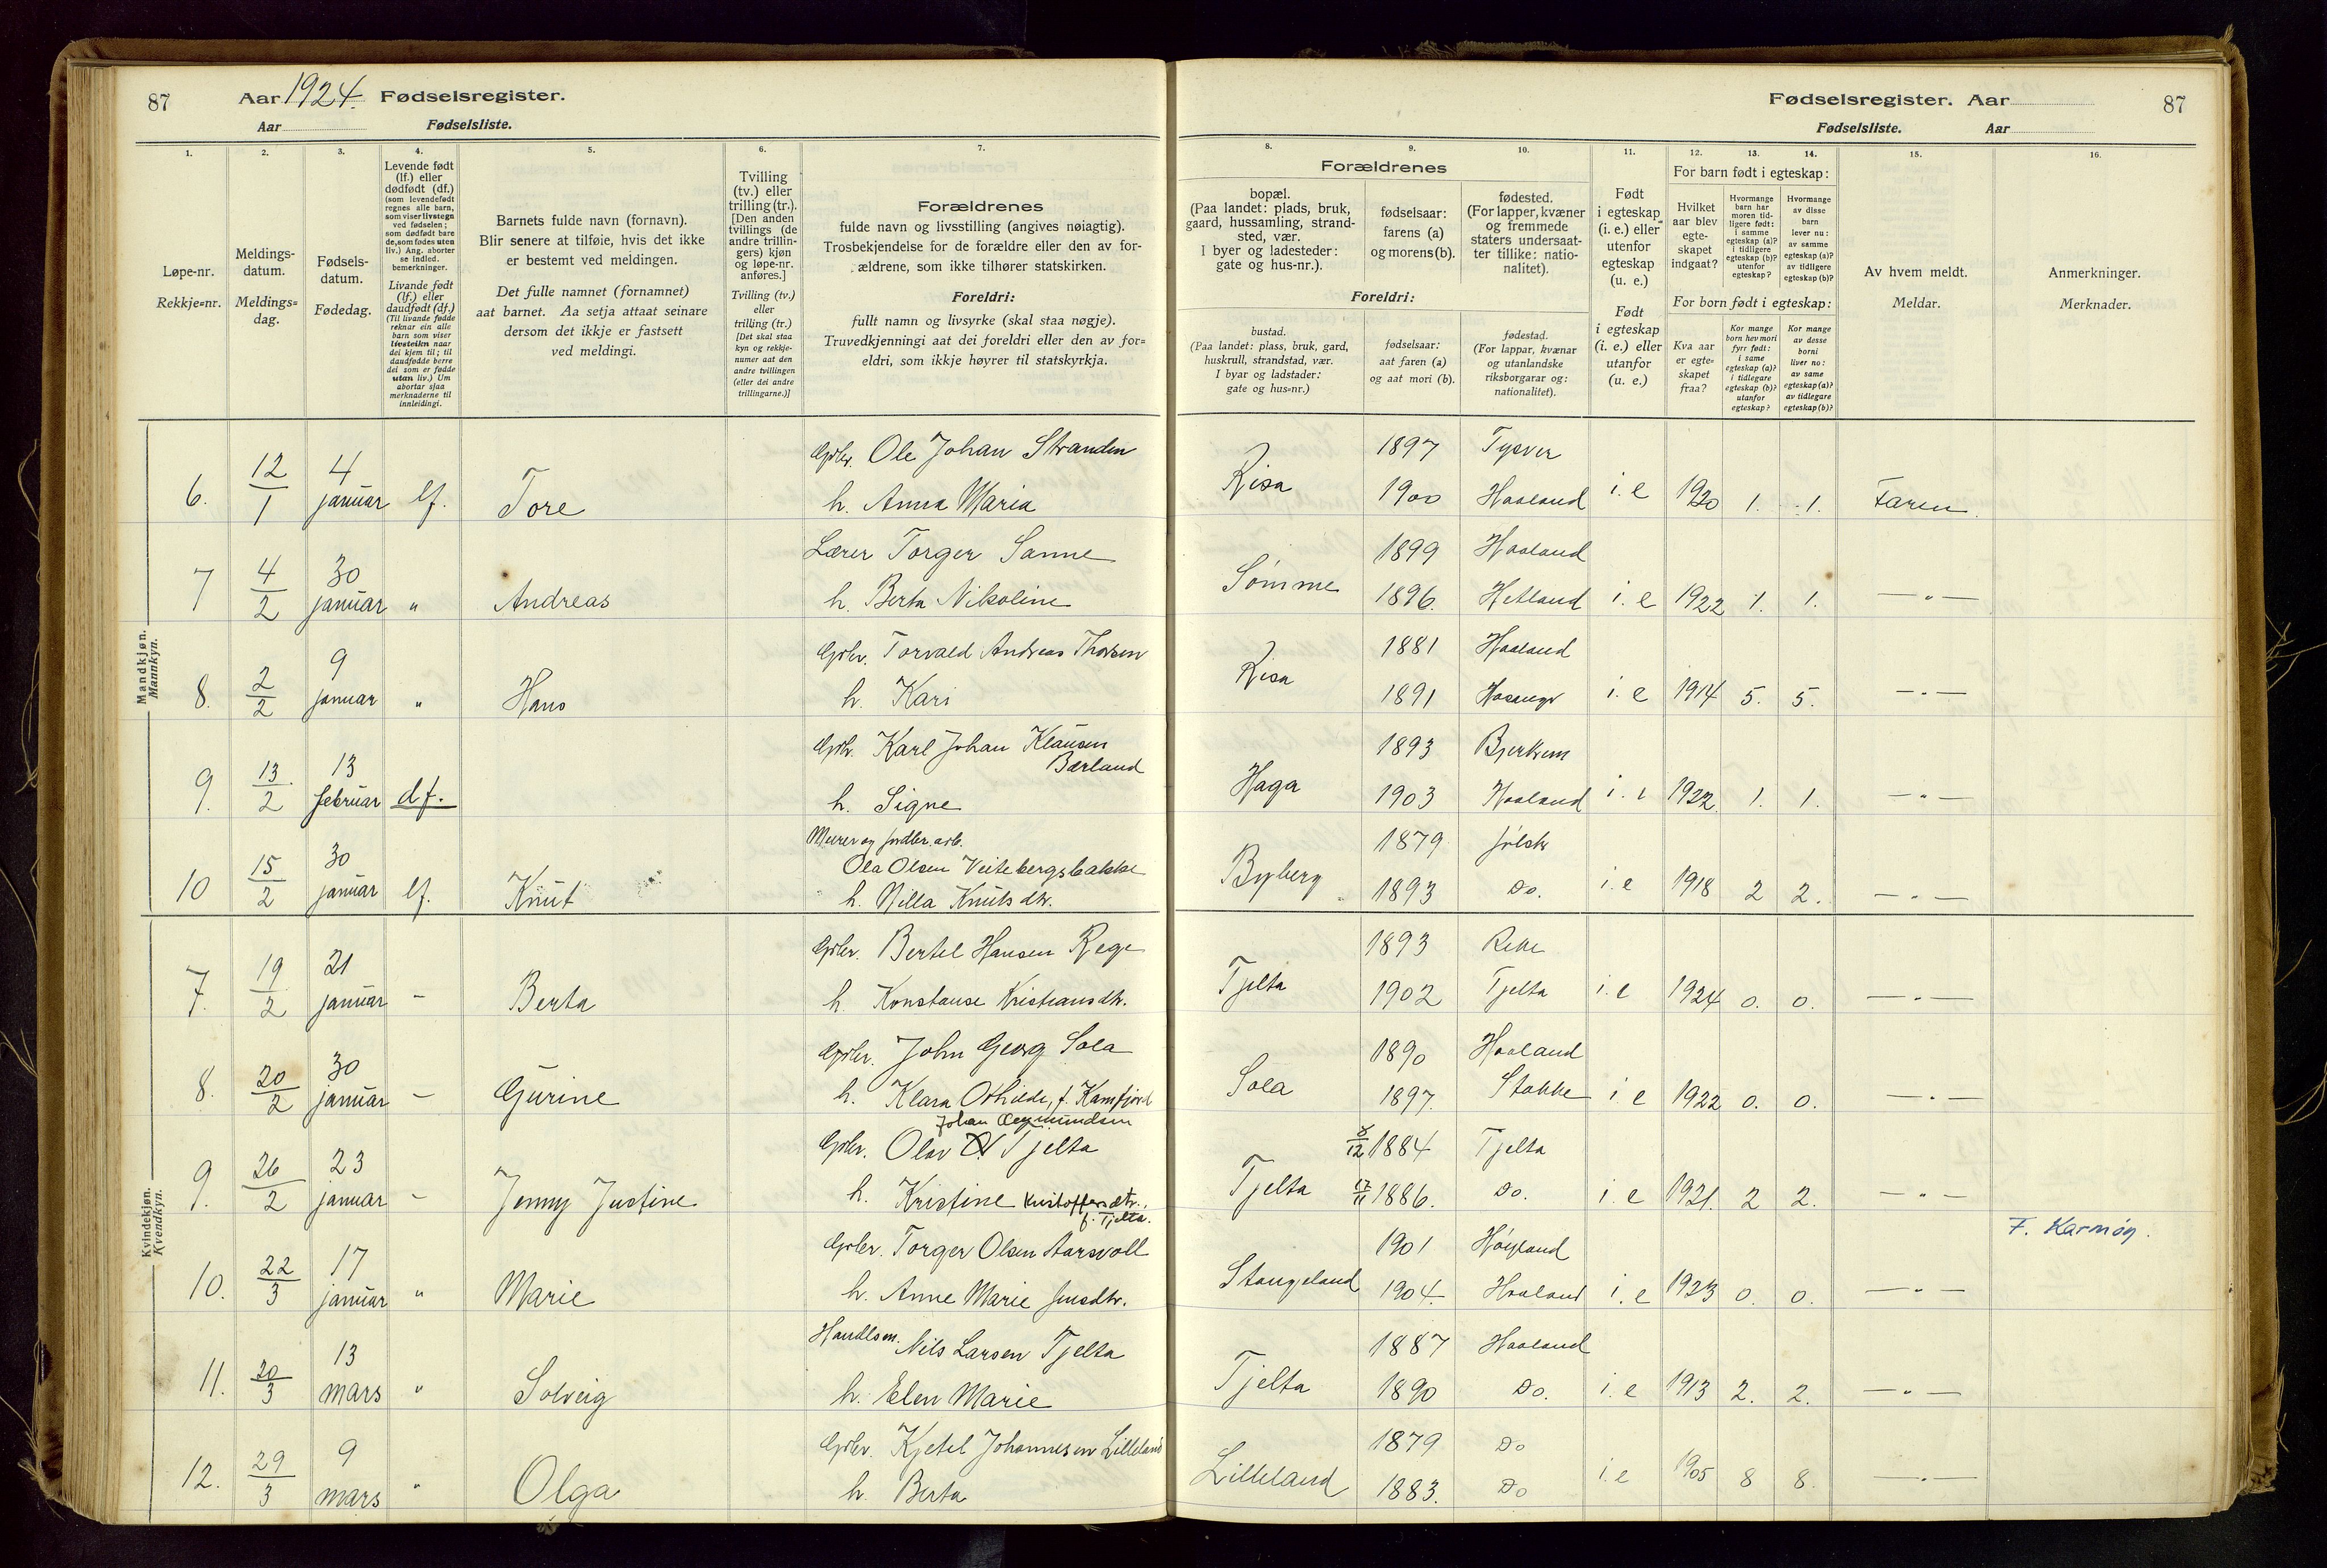 87 Aar 1924. Fødselsregister.
Aar Fødselsliste.
Fødselsregister. Aar 87
Fødselsliste. Aar
1. 2. 3. 4. 5. 6. 7. 8. 9. 10. 11. 12. 13. 14. 15. 16.
Løpe-nr.
Rekkje=nr.
Meldings-
datum.
Meldings=
dag.
Fødsels-
datum.
Fødedag.
Levende født
(lf.) eller
dødfødt (df.)
(som levendefødt
regnes alle barn,
som viser livstegn
ved fødselen;
som dødfødt bare
de, som fødes uten
liv.) Ang. aborter
se indled.
bemerkninger.
Livande født
(lf.) eller
daudfødt (df.)
(Til livande fødde
reknar ein alle
barn som viser
livsteikn naar
dei kjem til; til
daudfødde berre
dei som er fødde
utan liv.) Um
abortar sjaa
merknaderne til
innleidingi.
Barnets fulde navn (fornavn).
Blir senere at tilføie, hvis det ikke
er bestemt ved meldingen.
Det fulle namnet (fornamnet)
aat barnet. Aa setja attaat seinare
dersom det ikkje er fastsett
ved meldingi.
Tvilling
(tv.) eller
trilling (tr.).
[Den anden
tvillings (de
andre trillin-
gers) kjøn
og løpe-nr.
anføres.]
Tvilling (tv.)
eller
trilling (tr.)
[Det skal staa
kyn og rekkje-
numer aat den
andre tvillingen
(eller dei andre
trillingarne.)]
Forældrenes
fulde navn og livsstilling (angives nøiagtig).
Trosbekjendelse for de forældre eller den av for-
ældrene, som ikke tilhører statskirken.
Foreldri:
fullt namn og livsyrke (skal staa nøgje).
Truvedkjenningi aat dei foreldri eller den av for=
eldri, som ikkje høyrer til statskyrkja.
Forældrenes
bopæl.
(Paa landet: plads, bruk,
gaard, hussamling, strand-
sted, vær.
I byer og ladesteder:
gate og hus-nr.).
fødselsaar:
farens (a)
og morens (b).
fødested.
(For lapper, kvæner
og fremmede
staters undersaat-
ter tillike: natio-
nalitet).
Foreldri:
bustad.
(Paa landet: plass, bruk, gard,
huskrull, strandstad, vær.
I byar og ladstader:
gate og hus=nr.)
fødselsaar:
aat faren (a)
og aat mori (b).
fødestad.
(For lappar, kvænar
og utanlandske
riksborgarar og:
nationalitet).
Født
i egteskap
(i. e.) eller
utenfor
egteskap
(u. e.)
Født
i egteskap
(i. e.) eller
utanfor
(u. e.)
For barn født i egteskap:
Hvilket
aar blev
egte-
skapet
indgaat?
Hvormange
barn har
moren tid-
ligere født:
i samme
egteskap (a)?
i tidligere
egteskap (b)?
utenfor
egteskap?
Hvormange
av disse
barn
lever nu:
av samme
egteskap (a)?
av tidligere
egteskap (b)?
For born født i egteskap:
Kva aar
er egte=
skapet
fraa?
Kor mange
born hev mori
fyrr født:
i same
egteskap (a)?
i tidlegare
egteskap (b)?
utanfor
egteskap?
Kor mange
av desse
borni
liver no:
av same
egteskap (a)?
av tidlegare
egteskap (b)?
Av hvem meldt.
Meldar.
Anmerkninger.
Merknader.
Mandkjøn.
Mannkyn.
6. 12/1 4 januar lf. Tore Gbr. Ole Johan Stranden Risa 1897 Tysver
h. Anna Maria 1900 Haaland i. e 1920 1. 1. Faren
7 4/2 30 januar " Andreas Lærer Torger Sanne Sømme 1899 Haaland
h. Berta Nikoline 1896. Hetland i. e 1922 1. 1. — " —
8. 2/2 9 januar " Hans Gbr. Torvald Andreas Thorsen Risa 1881 Haaland
h. Kari 1891 i. e 1914 5. 5. — " —
9. 13/2 13 februar df. Gbr. Karl Johan Klausen
Bærland Haga 1893 Bjerkrem
h. Signe 1903 Haaland i. e 1922. 1. 1. — " —
10 15/2 30 januar lf. Knut Murer og jordbr. arb.
Ola Olsen Veitebergsbakke Byberg 1879 Jølstr
h. Nilla Knutsdtr. 1893 Do. i. e 1918 2 2. — " —
Kvindekjøn.
Kvendkyn.
7. 19/2 21 januar - Berta Gbr. Bertel Hansen Rege Tjelta 1893
h. Konstanse Kristiansdtr. 1902 Tjelta i. e 1924 0. 0. — " —
8. 20/2 30 januar - Gurine Gbr. John Georg Sola Sola 1890 Haaland
h. Klara Othilde, f. Kamfjord 1897. Stokke i e 1922 0. 0. — " —
Johan Aamundsen
9. 26/2 23 januar - Jenny Justine Gbr. Olav Tjelta Tjelta 8/12 1884 Tjelta
h. Kristine Kristoffersdtr.,
f. Tjelta. 17/11 1886. Do. i. e 1921. 2 2. — " —
F. Karmøy.
10. 22/3 17 januar " Marie Gbr. Torger Olsen Aarsvoll Stangeland 1901 Høyland
h. Anne Marie Jensdtr. 1904. Haaland i. e 1923 0. 0. — " —
11. 20/3 13 mars " Solveig Handlsm. Nils Larsen Tjelta Tjelta 1887 Haaland
h. Elen Marie 1890 Do. i. e 1913 2. 2. — " —
12. 29/3 9 mars " Olga Gbr. Kjetel Johannesen Lilleland Lilleland 1879 Do
h. Berta 1883. Do i. e 1905 8 8. — " —